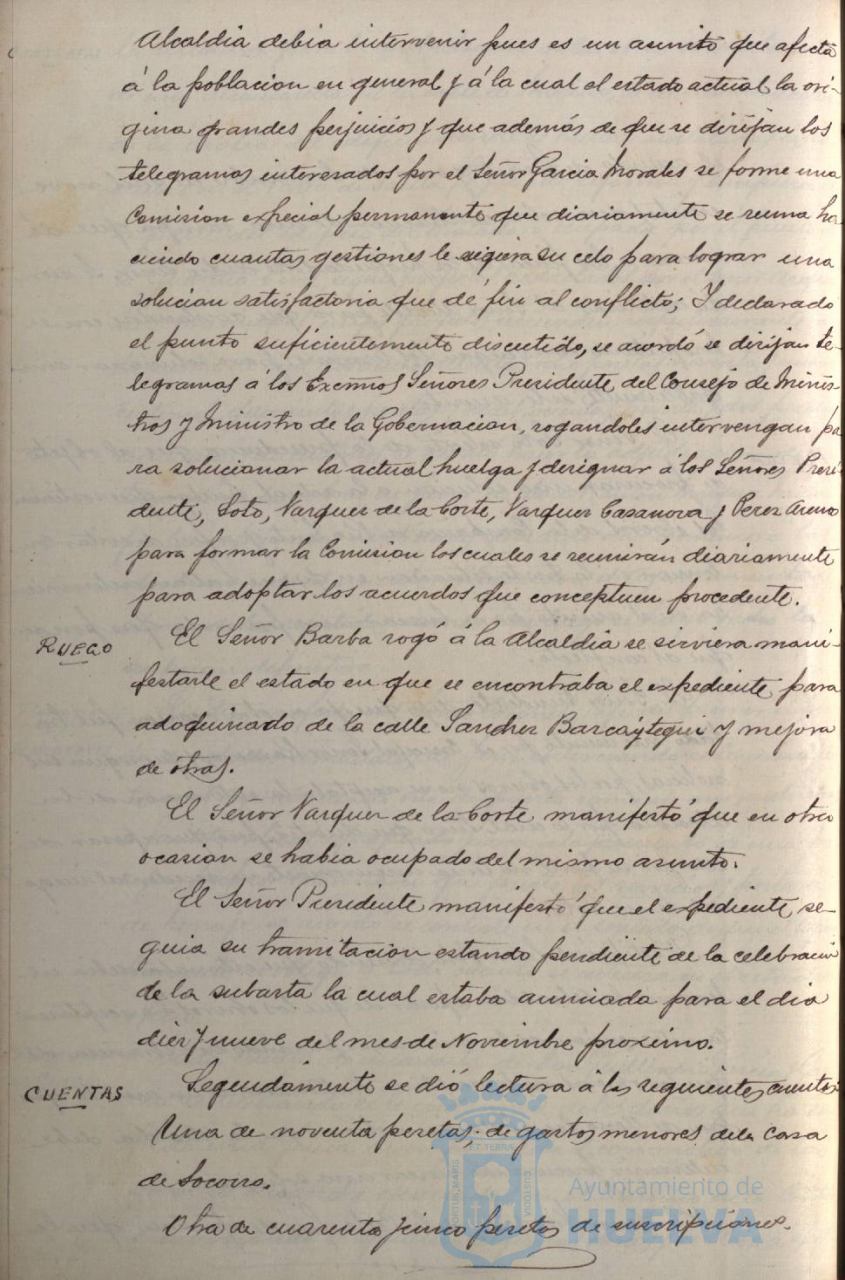 Alcaldia debia intervenir pues es un asunto que afecta
á la poblacion en general y á la cual el estado actual la ori-
gina grandes perjuicios y que además de que se dirijan los
telegramas interesados por el Señor Garcia Morales se forme una
Comision especial permanente que diariamente se reuna ha-
ciendo cuantas gestiones le sugiera su celo para lograr una
solucion satisfactoria que dé fin al conflicto; Y declarado
el punto suficientemente discutido, se acordó se dirijan te-
legramas á los Excmos Señores Presidente del Consejo de Minis-
tros y Ministro de la Gobernacion, rogandoles intervengan pa
ra solucionar la actual huelga y designar á los Señores Presi-
dente, Soto, Vazquez de la Corte, Vazquez Casanova y Perez
para formar la Comision los cuales se reunirán diariamente
para adoptar los acuerdos que conceptuen procedente.
RUEGO El Señor Barba rogó á la Alcaldia se sirviera mani-
festarle el estado en que se encontraba el expediente para
adoquinado de la calle Sanchez Barcaÿtegui y mejora
de otras.
El Señor Vazquez de la Corte manifestó que en otra
ocasion se habia ocupado del mismo asunto.
El Señor Presidente manifestó que el expediente se-
guia su tramitacion estando pendiente de la celebracion
de la subasta la cual estaba anunciada para el dia
diez y nueve del mes de Noviembre proximo.
CUENTAS Seguidamente se dió lectura á las siguientes cuentas:
Una de noventa pesetas, de gastos menores de la Casa
de Socorro.
Otra de cuarenta y cinco pesetas de suscripciones.
Ayuntamiento de
HUELVA